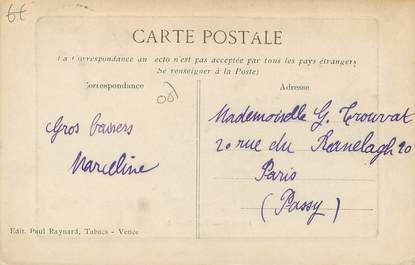 6€
CARTE POSTALE
La Correspondance au recto n'est pas acceptée par tous les pays étrangers
(Se renseigner à la Poste)
Correspondance
Adresse
Gros baisers
Marceline
Mademoiselle G. Trouvat
20 rue du Ranelagh 20
Paris
(Passy)
Edit. Paul Raynard, Tabacs - Vence